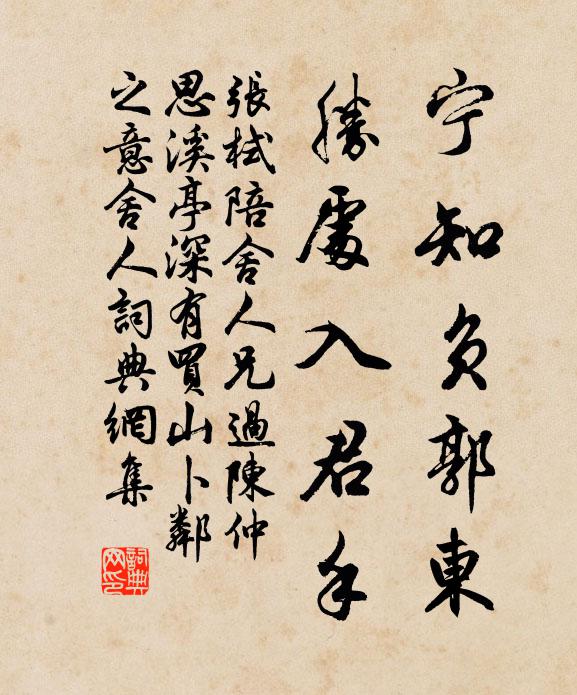 宁知负郭東
勝處入君手
張栻陪舍人兄過陳仲
思溪亭深有買山卜鄰
之意舍人詞典網集
詞典网印